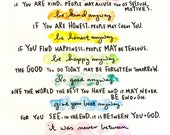 IF YOU ARE KIND, PEOPLE MAY ACCUSE YOU OF SELFISH MOTIVES.
be kind anyway.
IF YOU ARE HONEST, PEOPLE MAY CHEAT YOU.
be honest anyway
IF YOU FIND HAPPINESS, PEOPLE MAY BE JEALOUS.
be happy anyway
THE GOOD YOU DO TODAY MAY BE FORGOTTEN TOMORROW.
do good anyway
GIVE THE WORLD THE BEST YOU HAVE AND IT MAY NEVER
BE ENOUGH.
give your best anyway
FOR YOU SEE-IN THE END, IT IS BETWEEN YOU + GOD.
it was never between